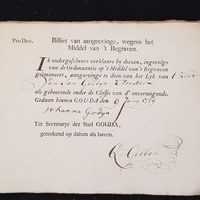 Pro Deo.
Billiet van aangeevinge, wegens het
Middel van 't Begraven.
Ik ondergeschreve verklaare by deesen, ingevolge
van de Ordonnantie op 't Middel van 't Begraven
geëmaneert, aangevinge te doen van het Lyk van
Jan van
als gehoorende onder de Classis van d' onvermogende.
Gedaan binnen GOUDA den 9
Johanna
Ter Secretarye der Stad GOUDA,
geteekend op datum als boven.